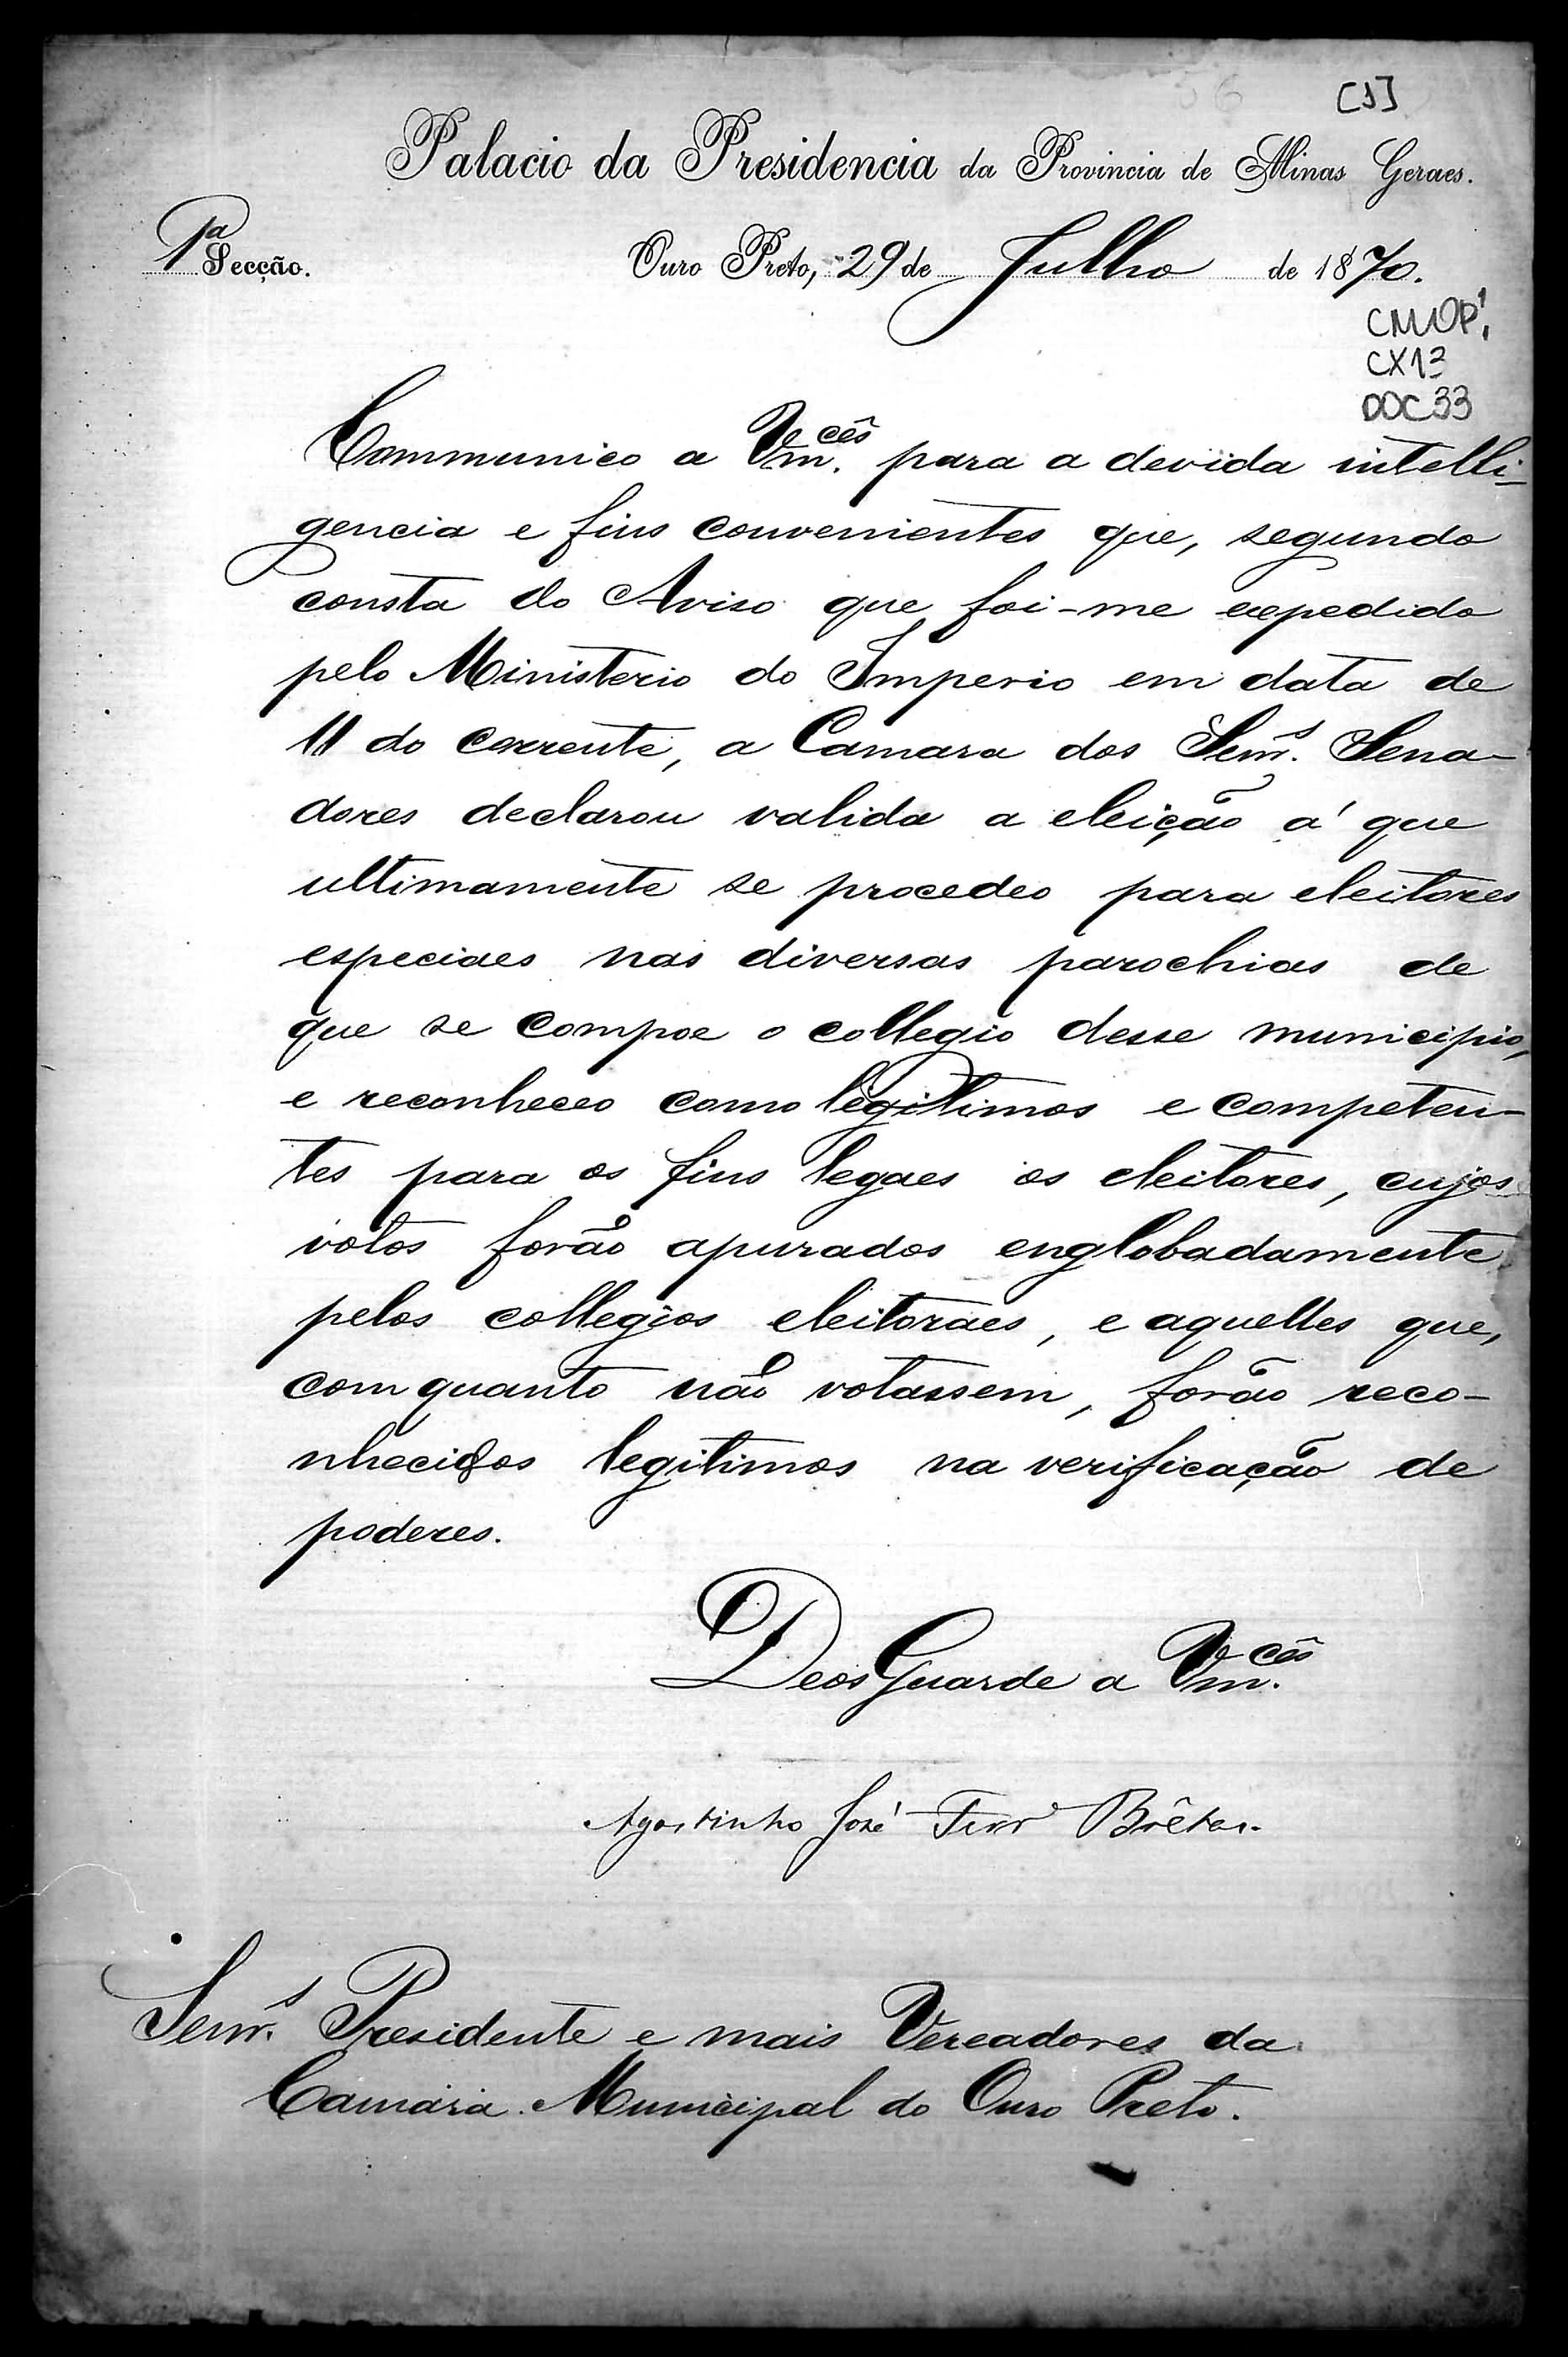 [1]
Palacio da Presidencia da Provincia de Minas Geraes.
1ª Secção.
Ouro Preto, 29 de Julho de 1870.
CMOP
CX13
DOC 33
Communico a Vm.cês para a devida intelli-
gencia e fins convenientes que, segundo
consta do Aviso que foi-me expedido
pelo Ministerio do Imperio em data de
11 do corrente, a Camara dos Senr.s Sena-
dores declarou valida a eleição á que
ultimamente se procedeo para eleitores
especiaes nas diversas parochias de
que se compoe o collegio desse municipio,
e reconheceo como legitimos e competen-
tes para os fins legaes os eleitores, cujos
votos forão apurados englobadamente
pelos collegios eleitoraes, e aquelles que,
com quanto não votassem, forão reco-
nhecidos legitimos na verificação de
poderes.
Deos Guarde a Vm.cês
Agostinho José Ferrª Brêtas.
Senr.s Presidente e mais Vereadores da
Camara Municipal do Ouro Preto.